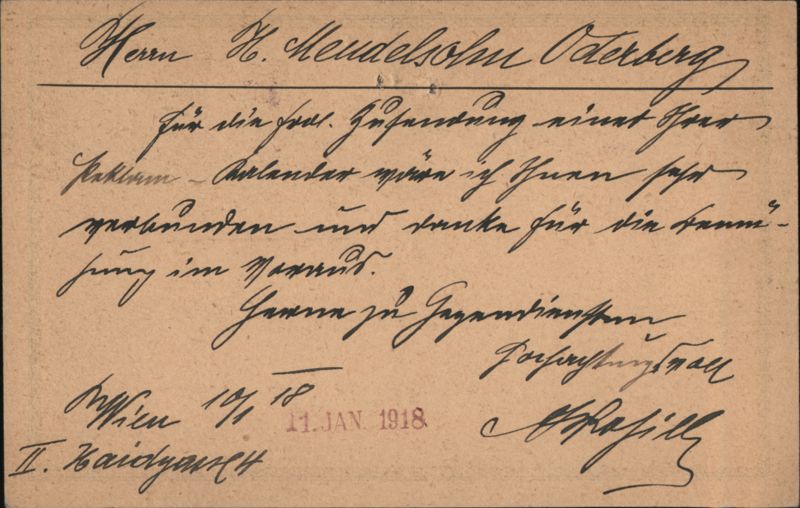 Herrn H. Mendelsohn Oderberg
Für die frdl. Zusendung eines Ihrer
Reklam-Kalender wäre ich Ihnen sehr
verbunden und danke für die Bemü-
hung im Voraus.
Gerne zu Gegendiensten
Hochachtungsvoll
Wien 10/1 18
11. JAN. 1918
II. Haidgasse 4